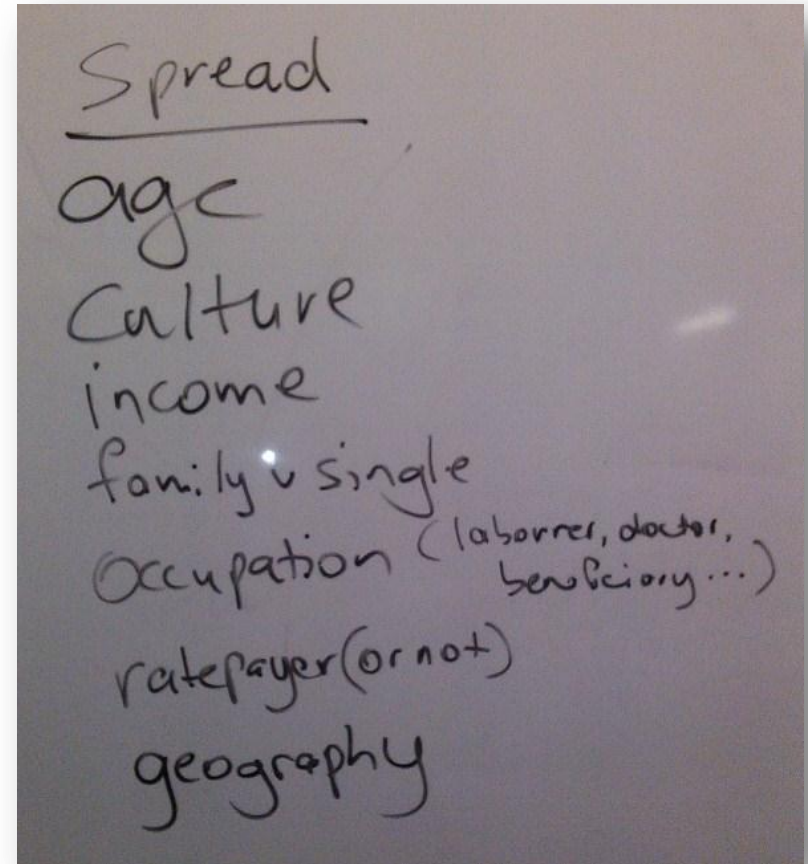 Spread
age
Culture
income
family v single
Occupation (labourer, doctor,
beneficiary...)
ratepayer (or not)
geography